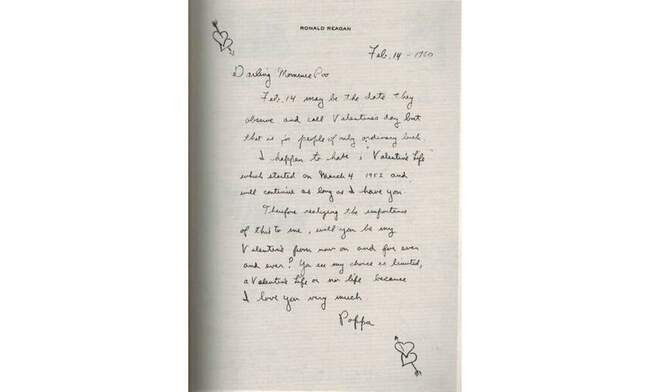 RONALD REAGAN
Feb. 14 - 1960
Darling Mommie Poo
Feb. 14 may be the date they
observe and call Valentines day but
that is for people of only ordinary luck.
I happen to have a "Valentine Life"
which started on March 4 1952 and
will continue as long as I have you.
Therefore realizing the importance
of this to me, will you be my
Valentine from now on and for ever
and ever? You see my choice is limited,
a Valentine Life or no life because
I love you very much.
Poppa